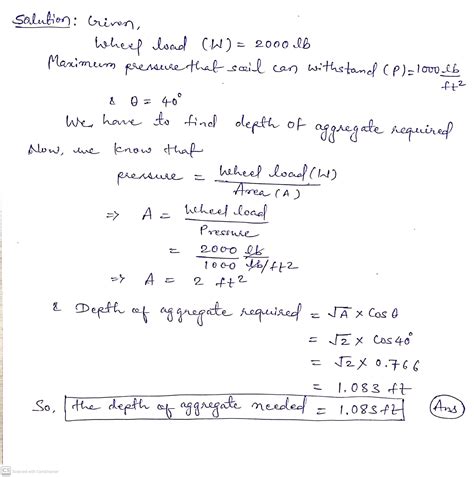 Solution: Given,
Wheel load (W) = 2000 lb
Maximum pressure that soil can withstand (P) = 1000 lb/ft2
& θ = 40°
We have to find depth of aggregate required
Now, we know that
pressure = Wheel load (W) / Area (A)
⇒ A = Wheel load / Pressure
= 2000 lb / 1000 lb/ft2
⇒ A = 2 ft2
& Depth of aggregate required = √A × Cos θ
= √2 × Cos 40°
= √2 × 0.766
= 1.083 ft
So, the depth of aggregate needed = 1.083 ft (Ans)
CS Scanned with CamScanner